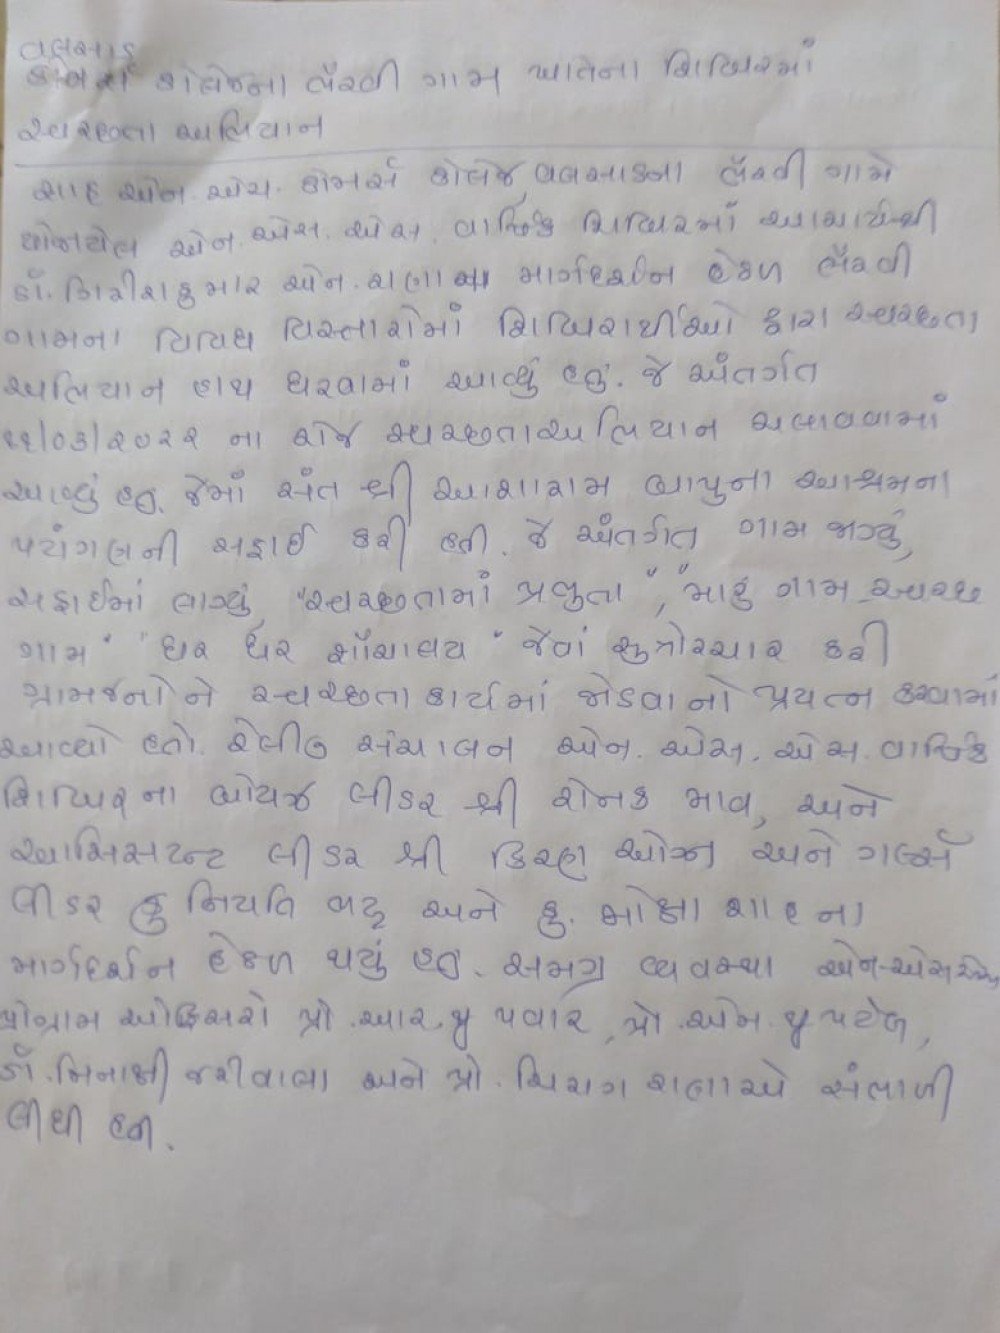 વલસાડ
કોમર્સ કોલેજના ભૈરવી ગામ ખાતેના શિબિરમાં
સ્વચ્છતા અભિયાન
શાહ એન. એચ. કોમર્સ કોલેજ, વલસાડના ભૈરવી ગામે
યોજાયેલ એન. એસ. એસ. વાર્ષિક શિબિરમાં આચાર્યશ્રી
ડૉ. ગિરીશકુમાર એન. રાણાના માર્ગદર્શન હેઠળ ભૈરવી
ગામના વિવિધ વિસ્તારોમાં શિબિરાર્થીઓ દ્વારા સ્વચ્છતા
અભિયાન હાથ ધરવામાં આવ્યું હતું. જે અંતર્ગત
૨૨/૦૩/૨૦૨૨ ના રોજ સ્વચ્છતા અભિયાન ચલાવવામાં
આવ્યું હતુ. જેમાં સંત શ્રી આશારામ બાપુના આશ્રમના
પટાંગણની સફાઈ કરી હતી. જે અંતર્ગત ગામ જાગ્યું,
સફાઈમાં લાગ્યું, "સ્વચ્છતામાં પ્રભુતા", "મારું ગામ સ્વચ્છ
ગામ" "ઘર ઘર શૌચાલય" જેવાં સુત્રોચ્ચાર કરી
ગ્રામજનોને સ્વચ્છતા કાર્યમાં જોડવાનો પ્રયત્ન કરવામાં
આવ્યો હતો. રેલીનુ સંચાલન એન. એસ. એસ. વાર્ષિક
શિબિરના બોયઝ લીડર શ્રી રોનક ભાવ, અને
આસિસટન્ટ લીડર શ્રી અને ગર્લ્સ
લીડર કુ નિયતિ ભટ્ટ અને કુ. મોક્ષા શાહના
માર્ગદર્શન હેઠળ થયું હતુ. સમગ્ર વ્યવસ્થા એન.એસ.એસ
પ્રોગ્રામ ઓફિસરો પ્રો. આર. યુ પવાર, પ્રો. એમ. યુ પટેલ,
ડૉ. મિનાક્ષી જરીવાલા અને પ્રો. ચિરાગ રાણાએ સંભાળી
લીધી હતી.